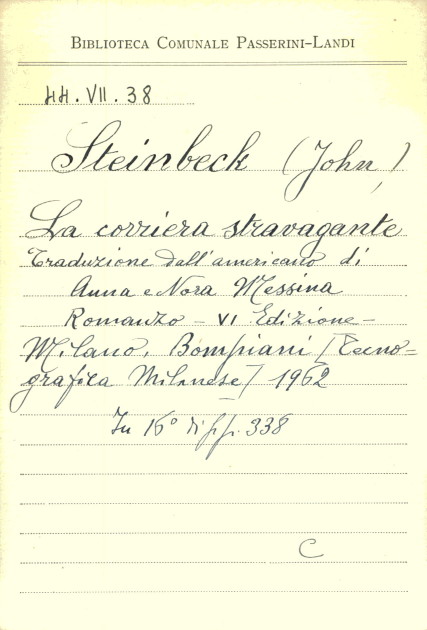 BIBLIOTECA COMUNALE PASSERINI-LANDI
44.VII.38
Steinbeck (John)
La corriera stravagante
Traduzione dall'americano di
Anna e Nora Messina
Romanzo - VI Edizione -
Milano, Bompiani [Tecno=
grafica Milanese] 1962
In 16° di pp. 338
C